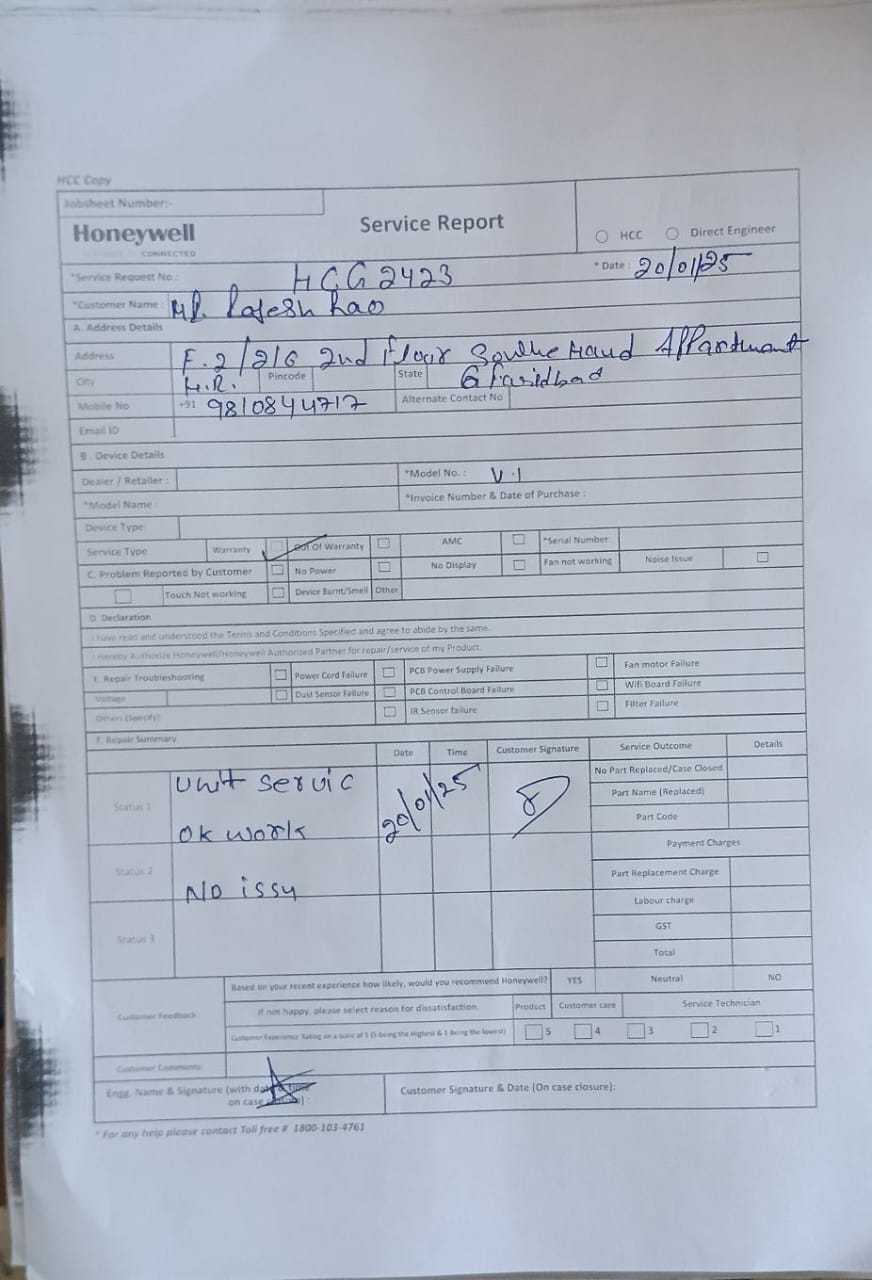 HCC Copy
Jobsheet Number:-
Honeywell
CONNECTED
Service Report
HCC Direct Engineer
*Service Request No.: HCG2423 * Date : 20/01/25
*Customer Name : Mr. Rajesh Rao
A. Address Details
Address F.2/216 2nd Floor
City H.R. Pincode State Faridbad
Mobile No +91 9810844717 Alternate Contact No
Email ID
B . Device Details
Dealer / Retailer : *Model No. : V.1
*Model Name *Invoice Number & Date of Purchase :
Device Type
Service Type Warranty Out Of Warranty AMC *Serial Number
C. Problem Reported by Customer No Power No Display Fan not working Noise Issue
Touch Not working Device Burnt/Smell Other
D. Declaration
I have read and understood the Terms and Conditions Specified and agree to abide by the same.
I Hereby Authorize Honeywell/Honeywell Authorized Partner for repair/service of my Product.
E. Repair Troubleshooting Power Cord Failure PCB Power Supply Failure Fan motor Failure
Voltage Dust Sensor Failure PCB Control Board Failure Wifi Board Failure
Others (Specify) IR Sensor failure Filter Failure
F. Repair Summary Date Time Customer Signature Service Outcome Details
No Part Replaced/Case Closed
Status 1 Unit servic 20/01/25 Part Name (Replaced)
ok work Part Code
Payment Charges
Status 2 Part Replacement Charge
No issy
Labour charge
GST
Status 3
Total
Based on your recent experience how likely, would you recommend Honeywell? YES Neutral NO
Customer Feedback If not happy, please select reason for dissatisfaction. Product Customer care Service Technician
Customer Experience Rating on a scale of 5 (5 being the Highest & 1 Being the lowest) 5 4 3 2 1
Customer Comments
Engg. Name & Signature (with date & time Customer Signature & Date (On case closure):
on case closure) :
* For any help please contact Toll free # 1800-103-4761